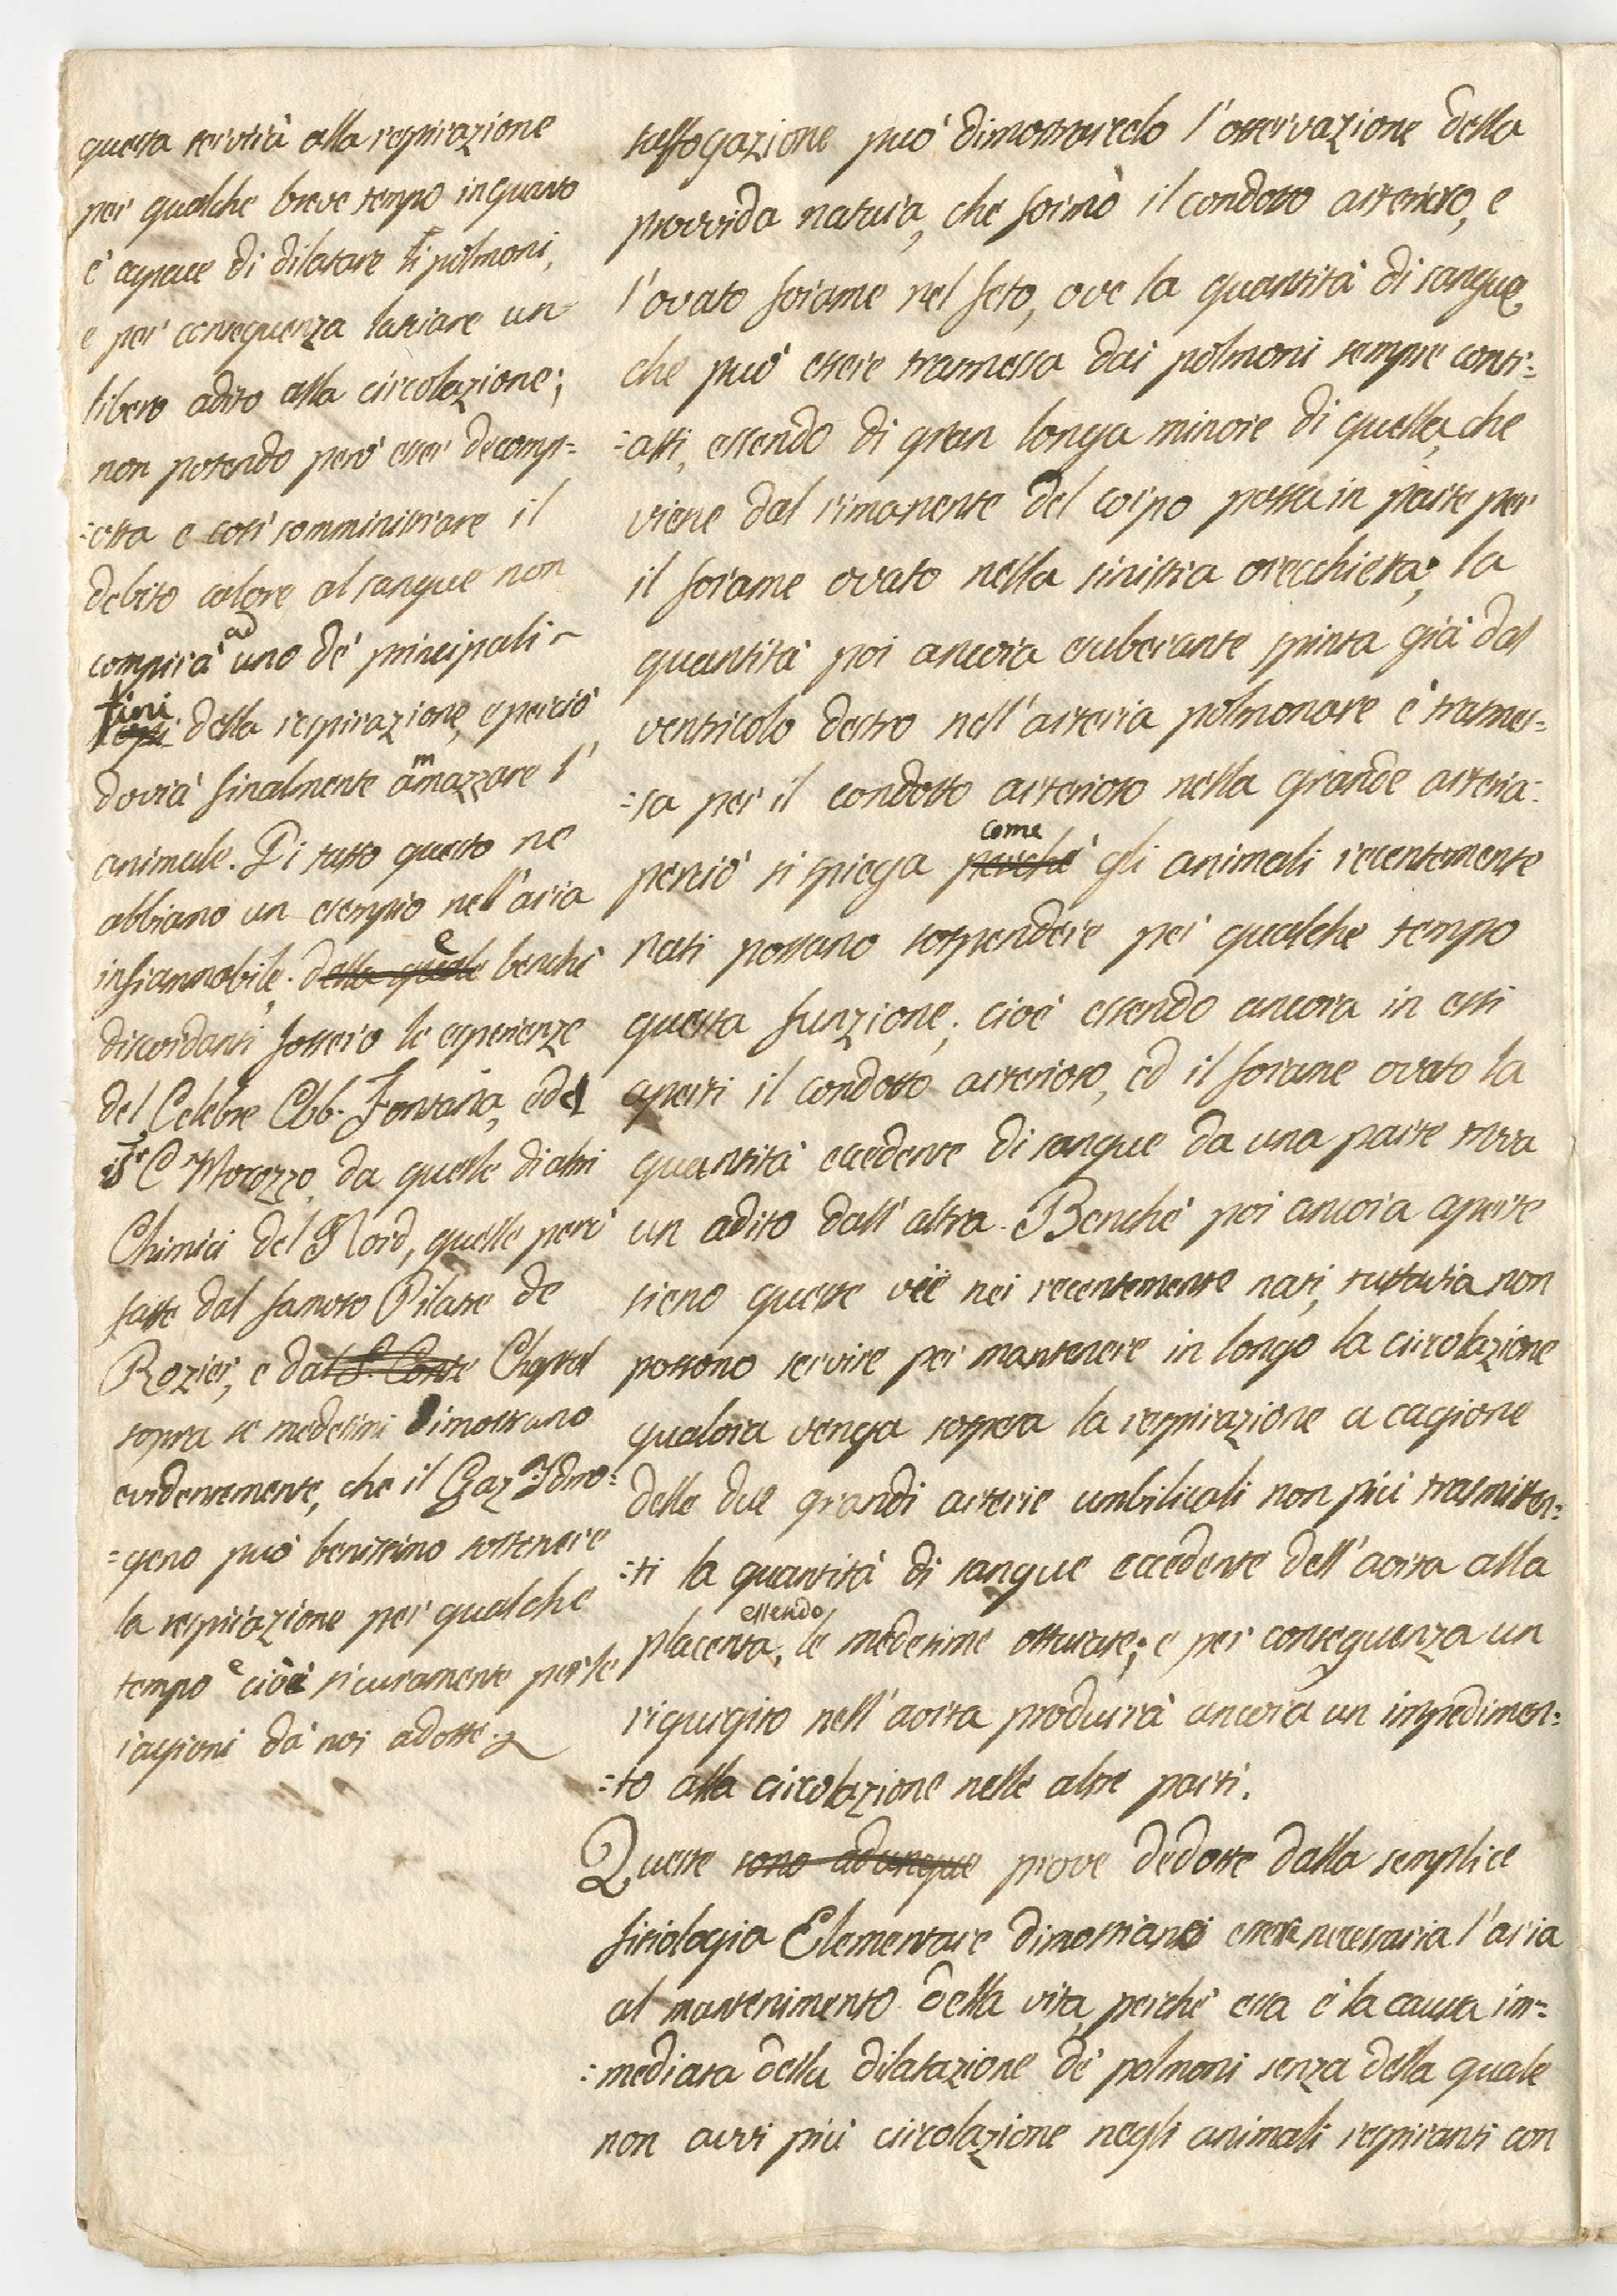 questa servirà alla respirazione
per qualche breve tempo in quanto
è capace di dilatare li polmoni,
e per conseguenza lasciare un
libero adito alla circolazione;
non potendo però esser decomp=
=osta e così somministrare il
debito calore al sangue non
compirà ad uno de' principali
fini della respirazione, e perciò
dovrà finalmente ammazzare l'
animale. Di tutto questo ne
abbiamo un esempio nell'aria
infiammabile. della quale e benchè
discordanti fossero le esperienze
del Celebre Abb. Fontana, ed
C Morozzo, da quelle di altri
Chimici del Nord, quelle però
fatte dal famoso Pilatre de
Rozier, e dal S. Conte Chaptal
sopra se medesimi dimostrano
evidentemente, che il Gaz Idro=
=geno può benissimo sostenere
la respirazione per qualche
tempo e ciò sicuramente per le
ragioni dà noi adotte.
suffogazione può dimostrarcelo l'osservazione della
provvida natura, che formò il condotto arterioso, e
l'ovato forame nel feto, ove la quantità di sangue,
che può essere trasmessa dai polmoni sempre contr=
=atti, essendo di gran longa minore di quella, che
viene dal rimanente del corpo passa in parte per
il forame ovato nella sinistra orecchietta; la
quantità poi ancora esuberante spinta già dal
ventricolo destro nell'arteria polmonare è trasmes=
=sa per il condotto arterioso nella grande arteria:
perciò si spiega perchè come gli animali recentemente
nati possano sospendere per qualche tempo
questa funzione; cioè essendo ancora in essi
aperti il condotto arterioso, ed il forame ovato la
quantità eccedente di sangue da una parte trova
un adito dall'altra. Benchè poi ancora aperte
sieno queste vie nei recentemente nati, tuttavia non
possono servire per mantenere in longo la circolazione
qualora venga sospesa la respirazione a cagione
delle due grandi arterie umbilicali non più trasmitten=
=ti la quantità di sangue eccedente dell'aorta alla
placenta, essendo le medesime otturate; e per conseguenza un
rigurgito nell'aorta produrrà ancora un impedimen=
=to alla circolazione nelle altre parti.
Queste sono adunque prove dedotte dalla semplice
fisiologia Elementare dimostrano essere necessaria l'aria
al mantenimento della vita, perchè essa è la causa im=
=mediata della dilatazione de' polmoni senza della quale
non avvi più circolazione negli animali respiranti con